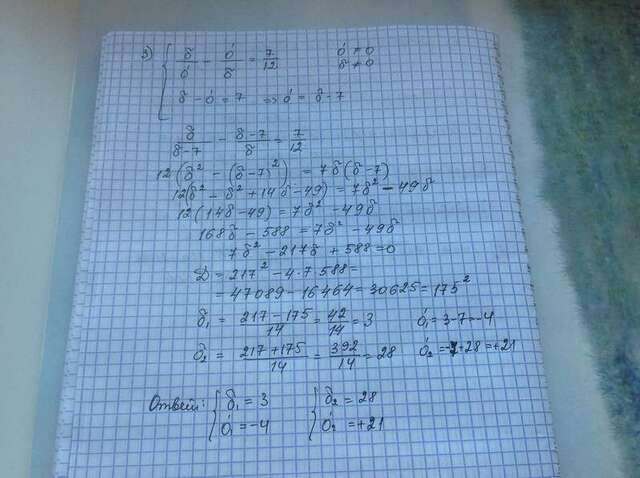 3) { δ/ó − ó/δ = 7/12   ó ≠ 0
δ ≠ 0
δ − ó = 7 ⇒ ó = δ − 7
δ/(δ−7) − (δ−7)/δ = 7/12
12(δ² − (δ−7)²) = 7δ(δ−7)
12(δ² − δ² + 14δ − 49) = 7δ² − 49δ
12(14δ − 49) = 7δ² − 49δ
168δ − 588 = 7δ² − 49δ
7δ² − 217δ + 588 = 0
D = 217² − 4·7·588 =
= 47089 − 16464 = 30625 = 175²
δ₁ = (217 − 175)/14 = 42/14 = 3   ó₁ = 3−7=−4
δ₂ = (217 + 175)/14 = 392/14 = 28   ó₂ = −7+28 = +21
Ответ: { δ₁ = 3   { δ₂ = 28
ó₁ = −4   ó₂ = +21